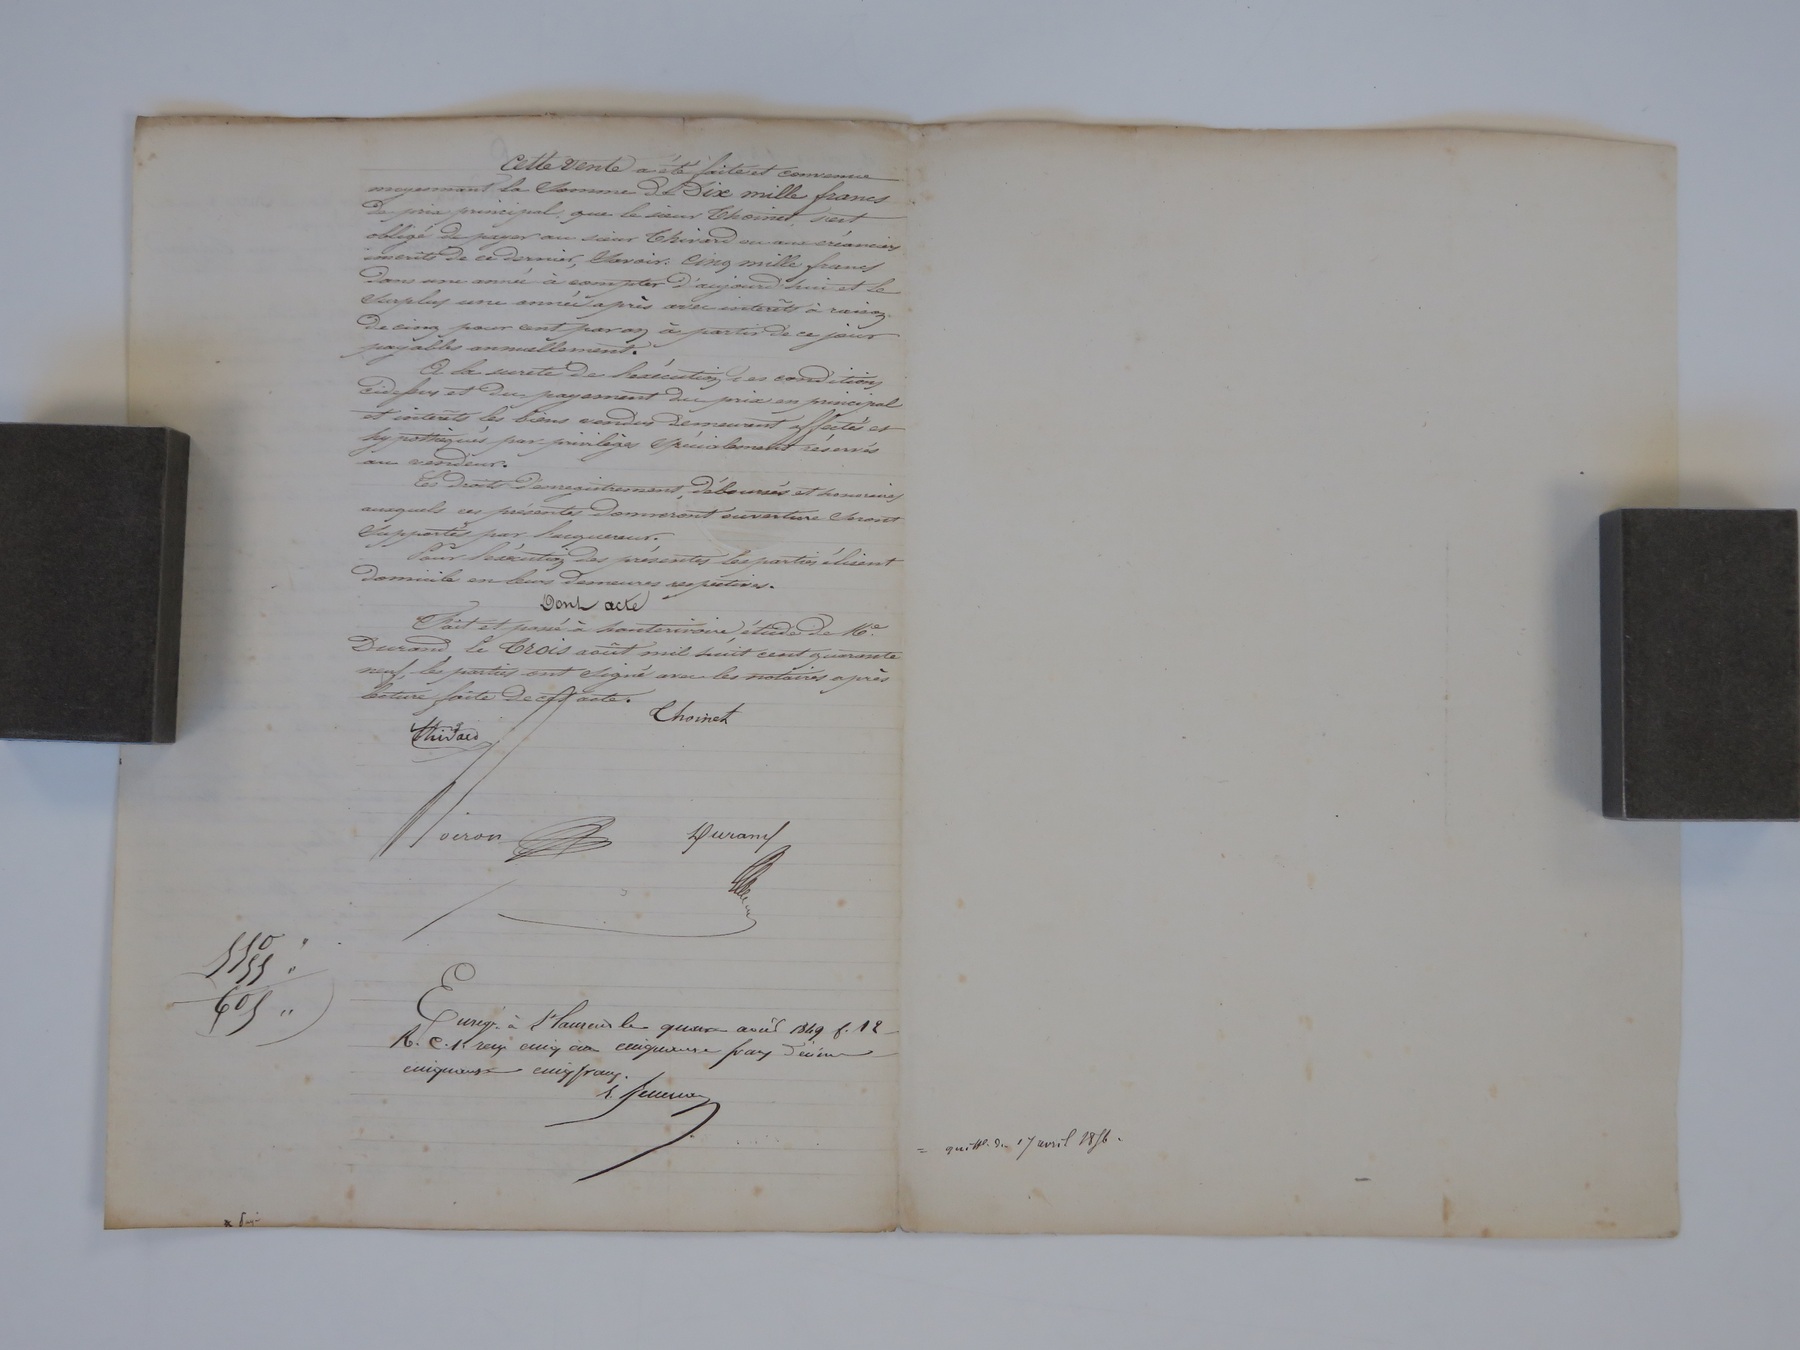 Cette vente a été faite et convenue
moyennant la somme de Dix mille francs
de prix principal, que le sieur Thoinet s'est
obligé de payer au sieur Thivard ou aux créanciers
inscrits de ce dernier, Savoir: Cinq mille francs
dans une année à compter d'aujourd'hui et le
surplus une année après avec intérêts à raison
de cinq pour cent par an à partir de ce jour
payables annuellement.
A la sureté de l'exécution des conditions
cidessus et du payement du prix en principal
et intérêts les biens vendus demeurent affectés et
hypothéqués par privilège spécialement réservés
au vendeur.
Les droits d'enregistrement, déboursés et honoraires
auxquels ces présentes donneront ouverture seront
supportés par l'acquereur.
Pour l'exécution des présentes les parties élisent
domicile en leurs demeures respectives.
Dont acte
Fait et passé à hauterivoire, étude de Me.
Durand, le Trois août mil huit cent quarante
neuf, les parties ont signé avec les notaires après
lecture faite de cet acte.
Thoinet
Thivard
Noiron Durand
550 "
55 "
605 "
Enregr. à St Laurent le quatre août 1849 f. 12
R. C. 1re reçu cinq cent cinquante francs décime
cinquante cinq francs.
= quitte. du 17 avril 1856.